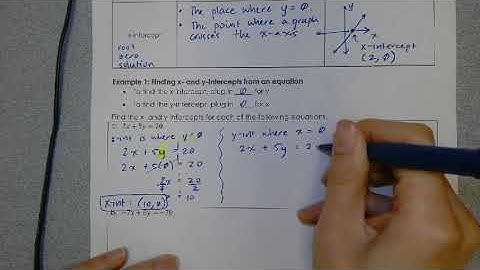 • The place where y = 0.
• The point where a graph crosses the x-axis
x-intercept
root
zero
solution
y
x
x-intercept
(2, 0)
Example 1: Finding x- and y-intercepts from an equation
• To find the x-intercept, plug in 0 for y
• To find the y-intercept, plug in 0 for x
Find the x- and y-intercepts for each of the following equations.
2x + 5y = 20
x-int is where y = 0
2x + 5y = 20
2x + 5(0) = 20
2x = 20
2 2
x = 10
x-int: (10, 0)
y-int where x = 0
2x + 5y = 2